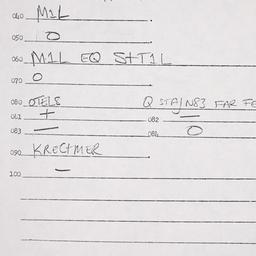 040 M1L
050 O
060 M1L EQ S+T1L
070 O
080 OTELS Q STA/N83 FAR
081 + 082 —
083 — 084 O
090 KRECHMER
—
100